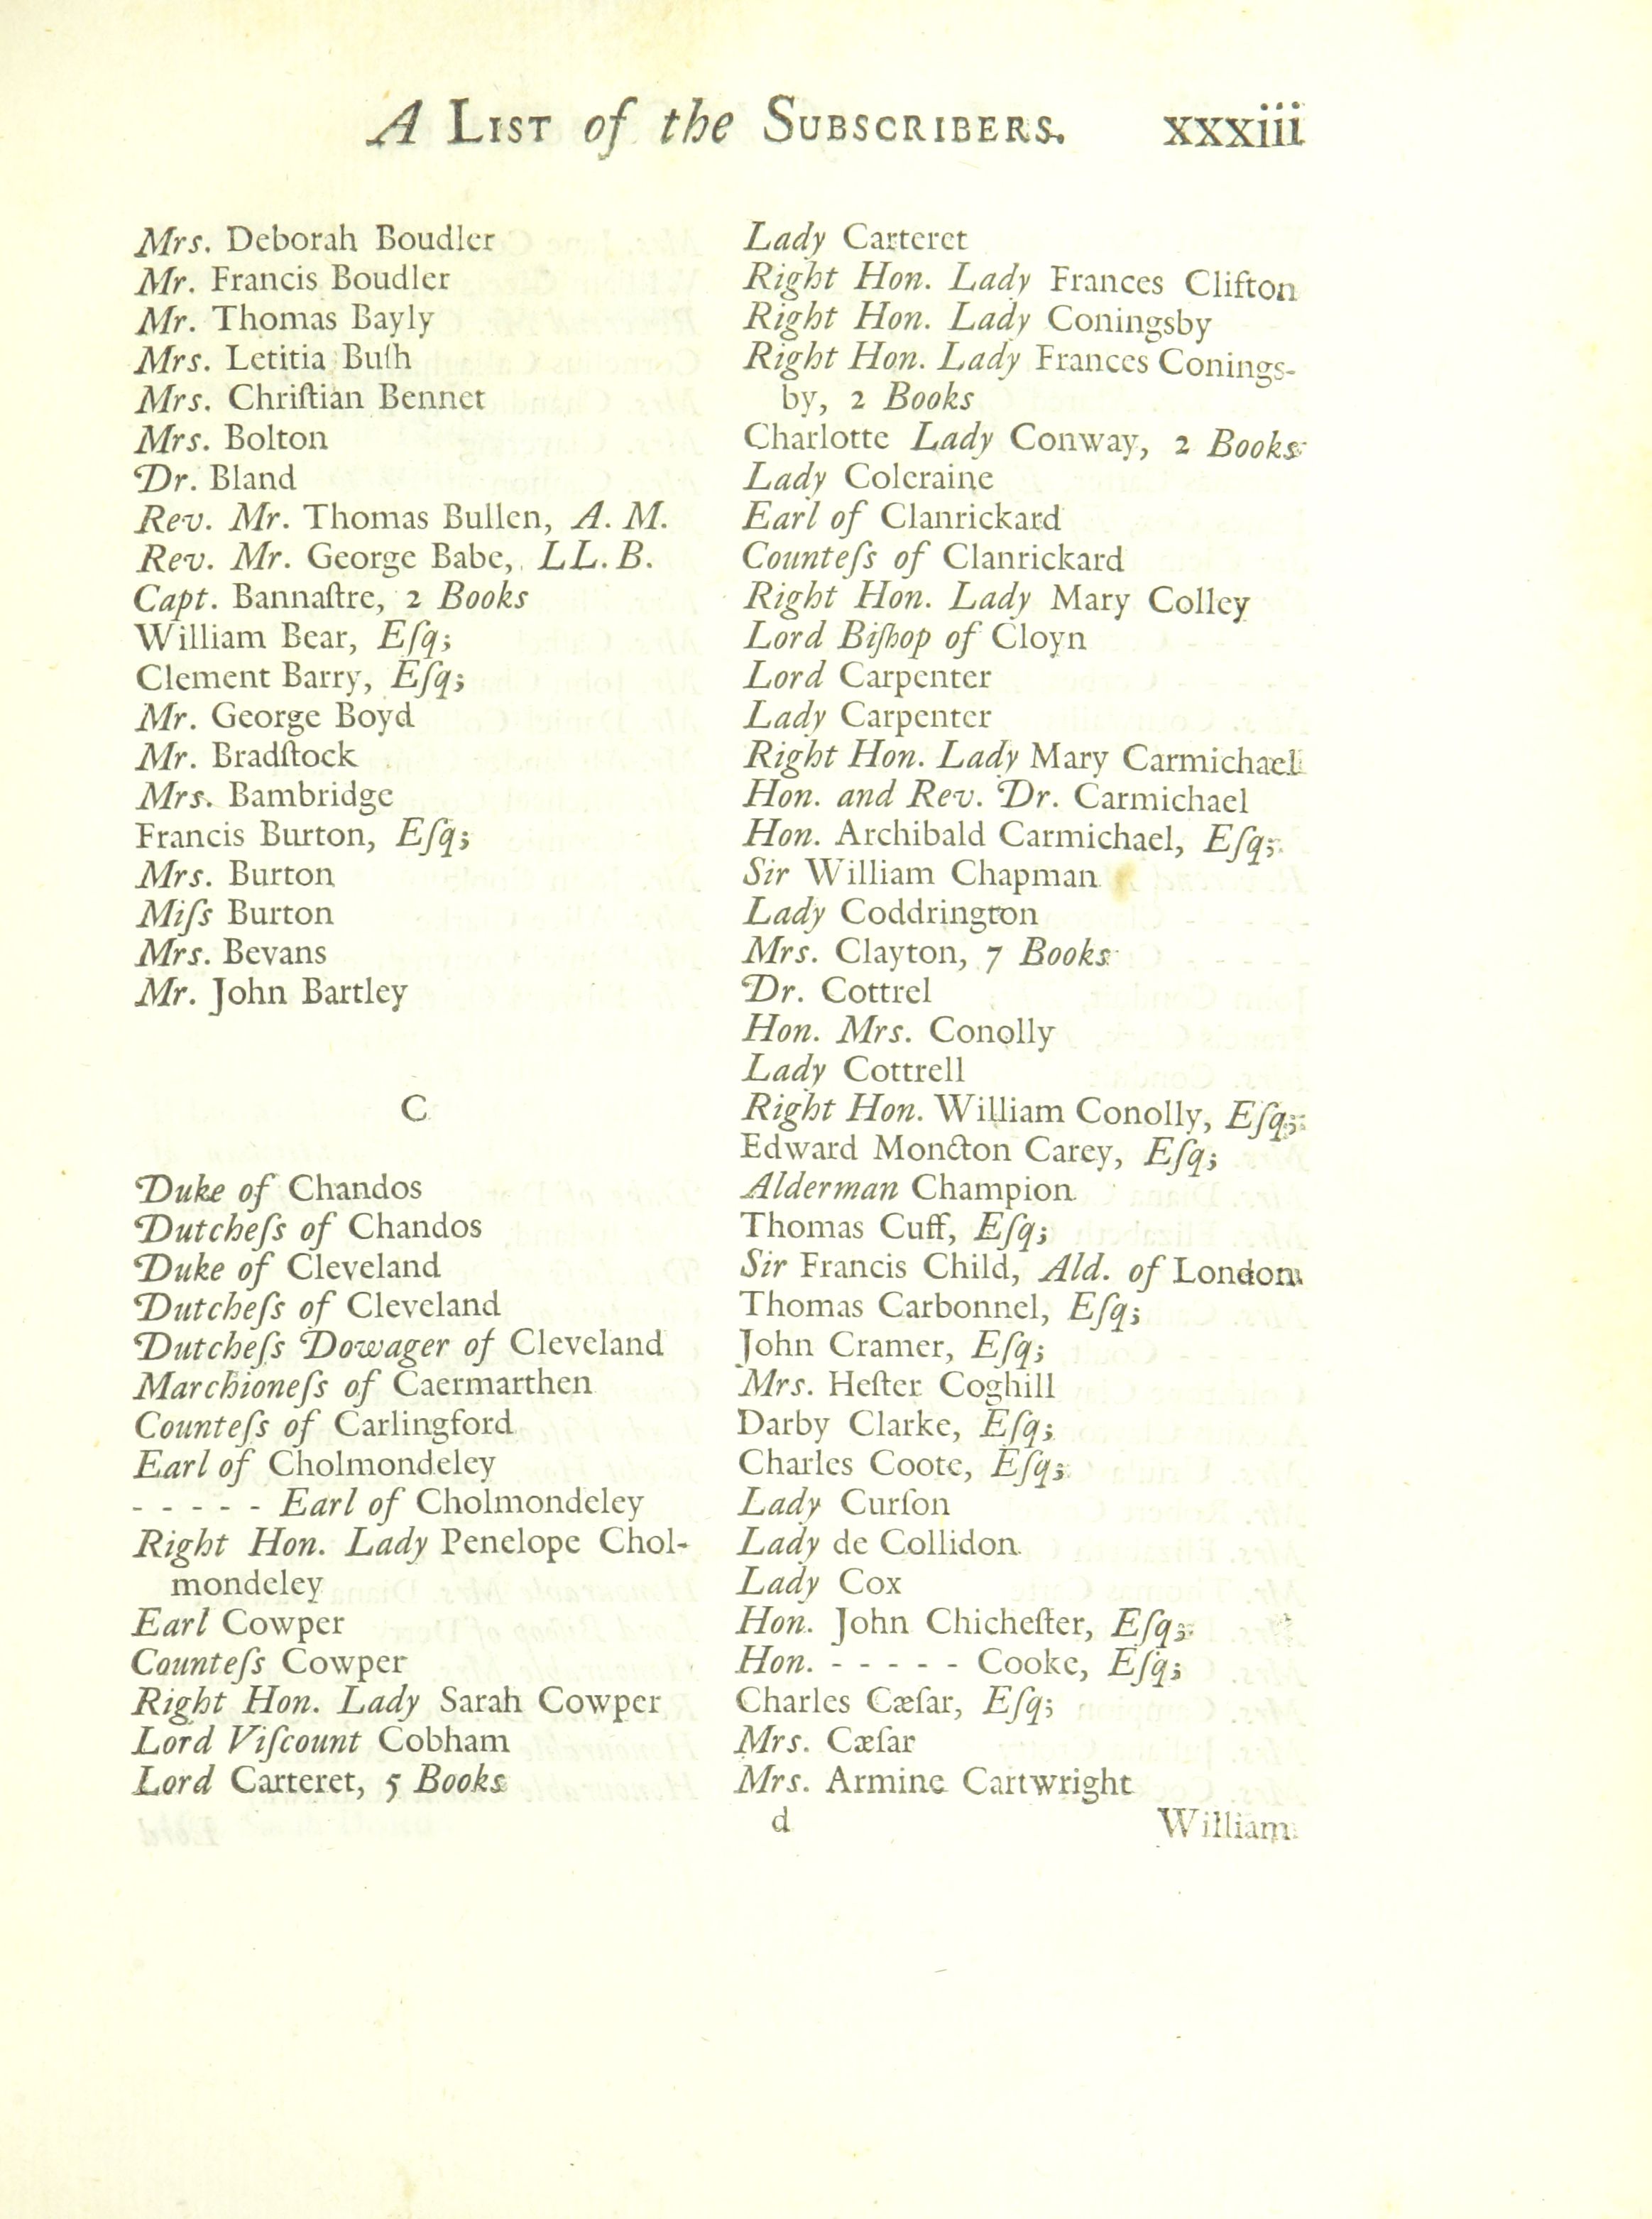 A LIST of the SUBSCRIBERS. xxxiii
Mrs. Deborah Boudler
Mr. Francis Boudler
Mr. Thomas Bayly
Mrs. Letitia Buſh
Mrs. Chriſtian Bennet
Mrs. Bolton
Dr. Bland
Rev. Mr. Thomas Bullen, A. M.
Rev. Mr. George Babe, LL. B.
Capt. Bannaſtre, 2 Books
William Bear, Eſq;
Clement Barry, Eſq;
Mr. George Boyd
Mr. Bradſtock
Mrs. Bambridge
Francis Burton, Eſq;
Mrs. Burton
Miſs Burton
Mrs. Bevans
Mr. John Bartley
C
Duke of Chandos
Dutcheſs of Chandos
Duke of Cleveland
Dutcheſs of Cleveland
Dutcheſs Dowager of Cleveland
Marchioneſs of Caermarthen
Counteſs of Carlingford
Earl of Cholmondeley
- - - - - Earl of Cholmondeley
Right Hon. Lady Penelope Chol-
mondeley
Earl Cowper
Counteſs Cowper
Right Hon. Lady Sarah Cowper
Lord Viſcount Cobham
Lord Carteret, 5 Books
Lady Carteret
Right Hon. Lady Frances Clifton
Right Hon. Lady Coningsby
Right Hon. Lady Frances Conings-
by, 2 Books
Charlotte Lady Conway, 2 Books
Lady Coleraine
Earl of Clanrickard
Counteſs of Clanrickard
Right Hon. Lady Mary Colley
Lord Biſhop of Cloyn
Lord Carpenter
Lady Carpenter
Right Hon. Lady Mary Carmichael
Hon. and Rev. Dr. Carmichael
Hon. Archibald Carmichael, Eſq;
Sir William Chapman
Lady Coddrington
Mrs. Clayton, 7 Books
Dr. Cottrel
Hon. Mrs. Conolly
Lady Cottrell
Right Hon. William Conolly, Eſq;
Edward Moncton Carey, Eſq;
Alderman Champion
Thomas Cuff, Eſq;
Sir Francis Child, Ald. of London
Thomas Carbonnel, Eſq;
John Cramer, Eſq;
Mrs. Heſter Coghill
Darby Clarke, Eſq;
Charles Coote, Eſq;
Lady Curſon
Lady de Collidon
Lady Cox
Hon. John Chicheſter, Eſq;
Hon. - - - - - Cooke, Eſq;
Charles Cæſar, Eſq;
Mrs. Cæſar
Mrs. Armine Cartwright
d William